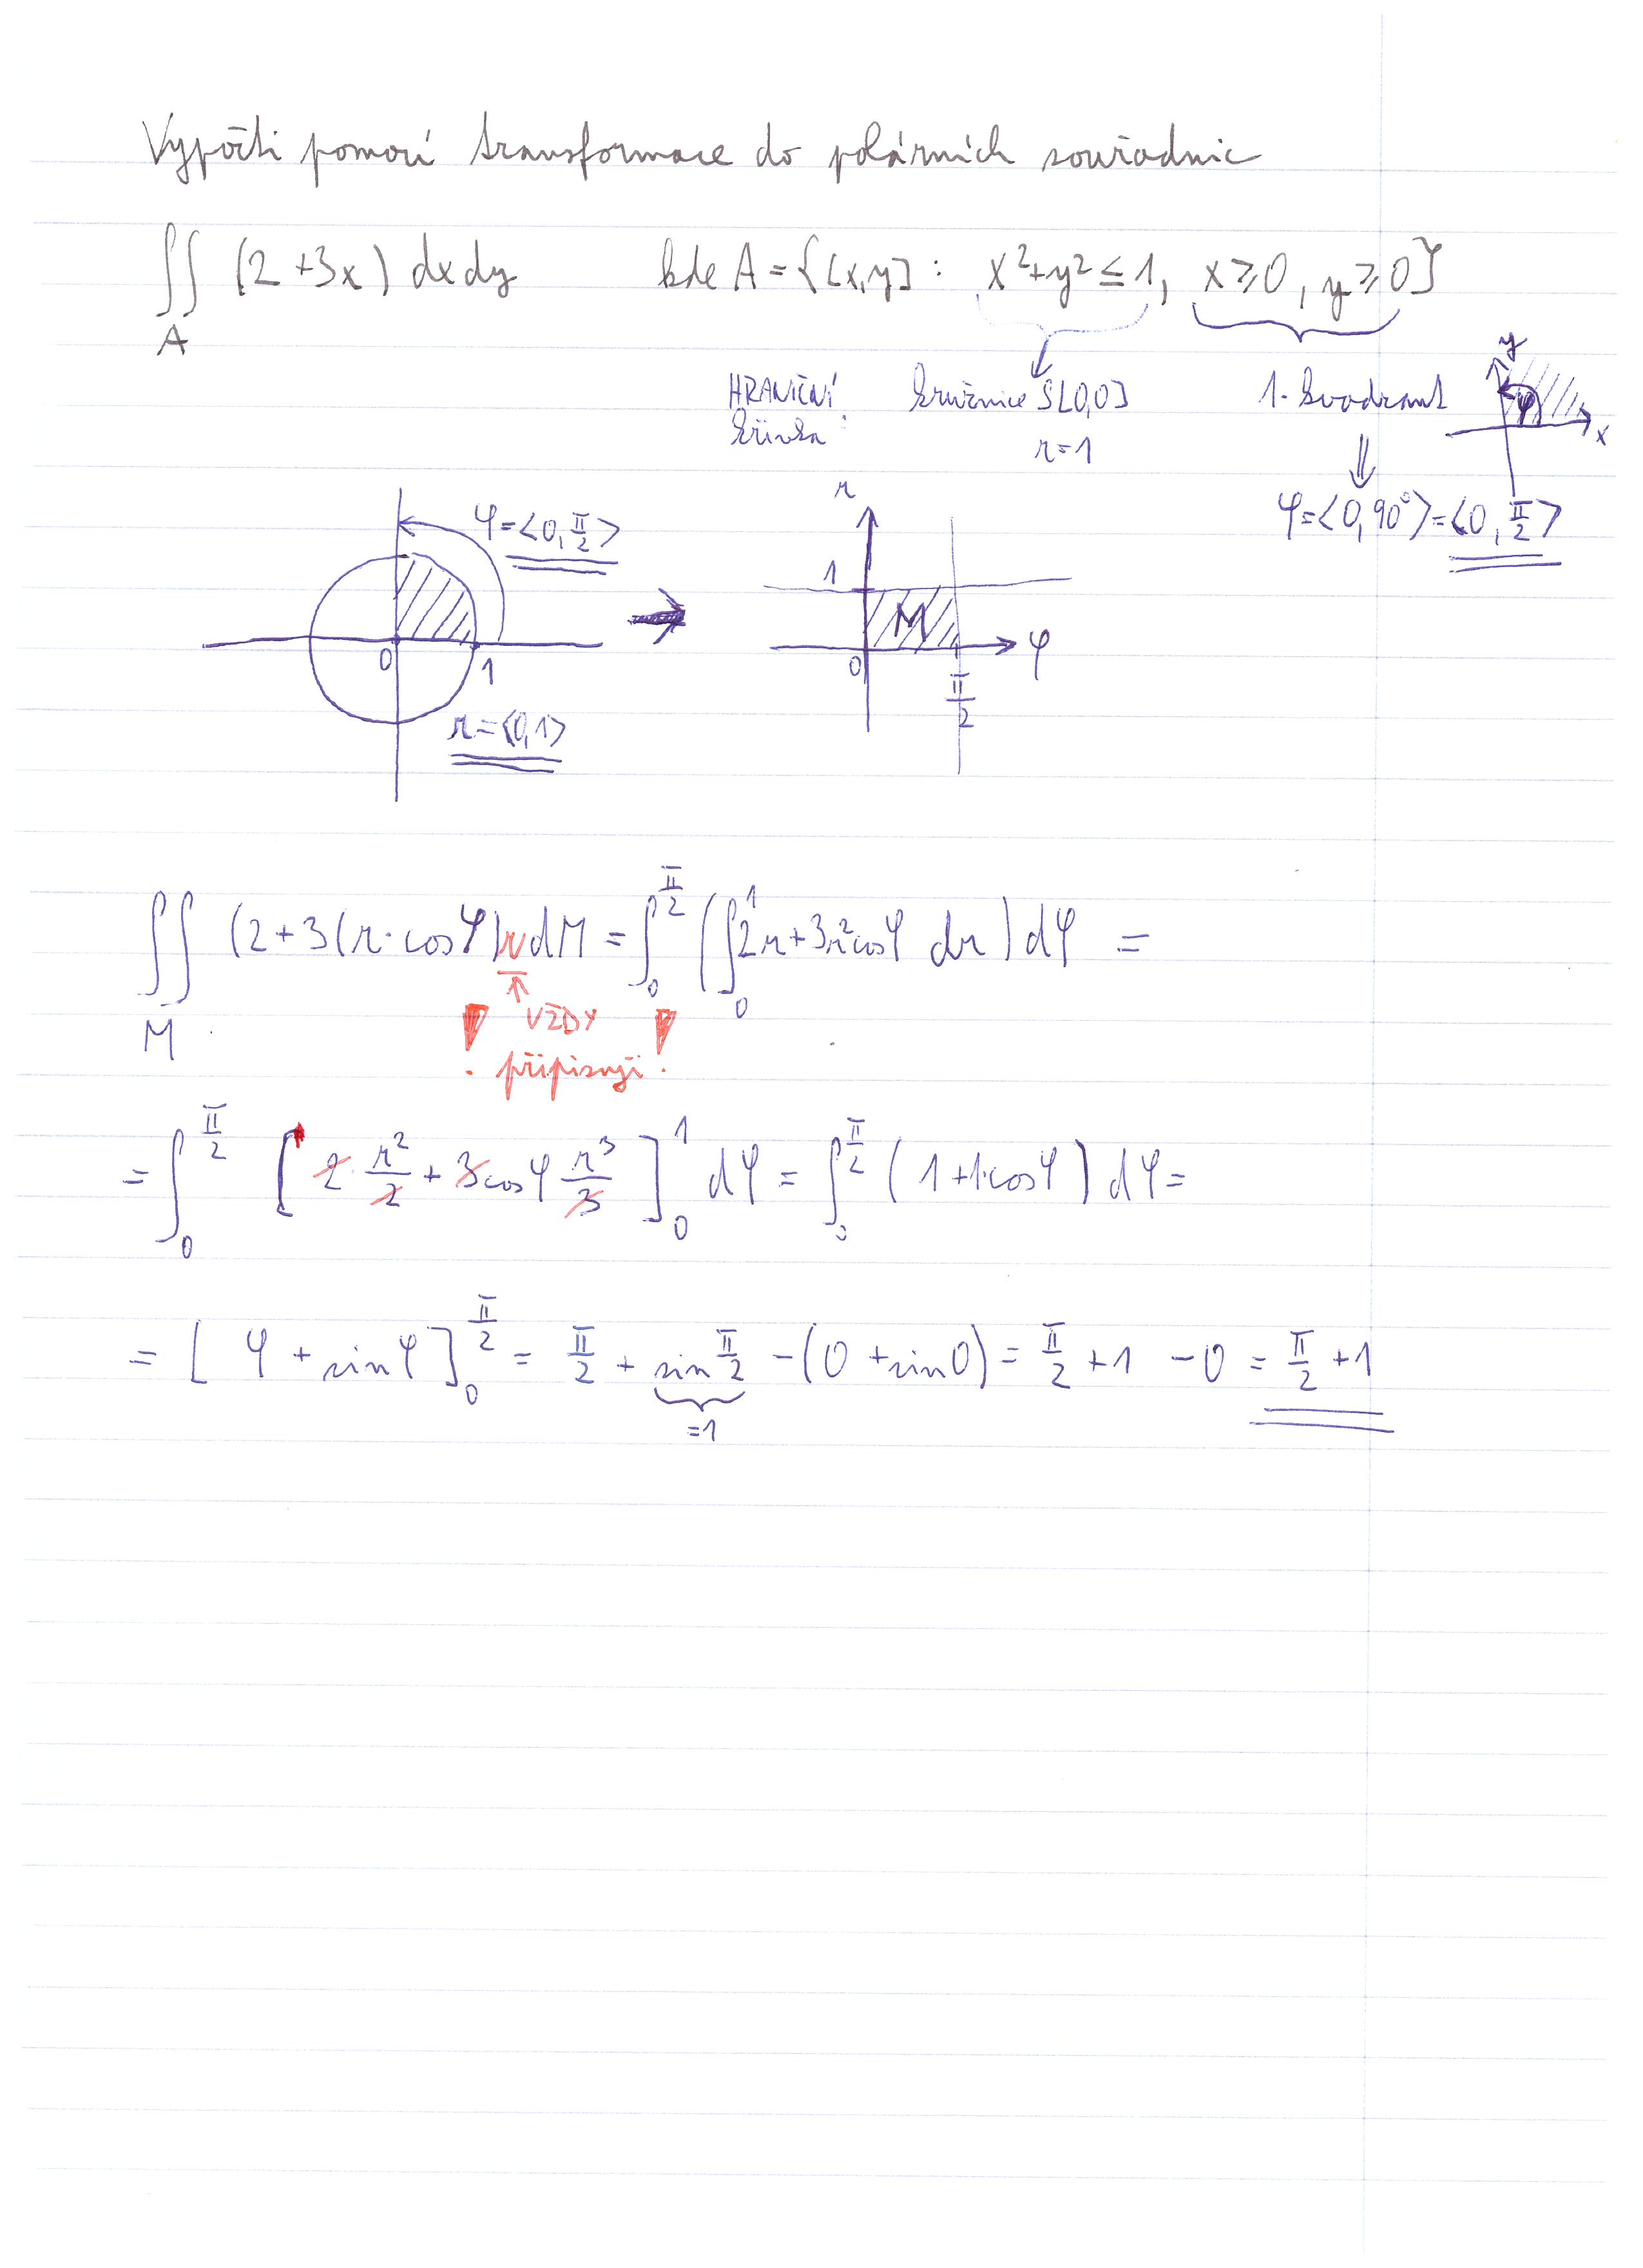 Vypočti pomocí transformace do polárních souřadnic
∬ (2+3x) dxdy kde A = {[x,y] : x²+y² ≤ 1, x ≥ 0, y ≥ 0}
A
HRANIČNÍ křivka: kružnice S[0,0] r=1
1. kvadrant
y
φ
x
φ=⟨0,90°⟩=⟨0, π/2⟩
φ=⟨0, π/2⟩
0
1
r=⟨0,1⟩
r
1
M
0
φ
π/2
∬ (2+3(r·cosφ) r dM = ∫₀^(π/2) (∫₀¹ 2r+3r²cosφ dr) dφ =
M
! VŽDY připisuji !
= ∫₀^(π/2) [2·r²/2 + 3cosφ r³/3]₀¹ dφ = ∫₀^(π/2) (1+1·cosφ) dφ =
= [φ + sinφ]₀^(π/2) = π/2 + sin π/2 - (0 + sin0) = π/2 + 1 - 0 = π/2 + 1
=1